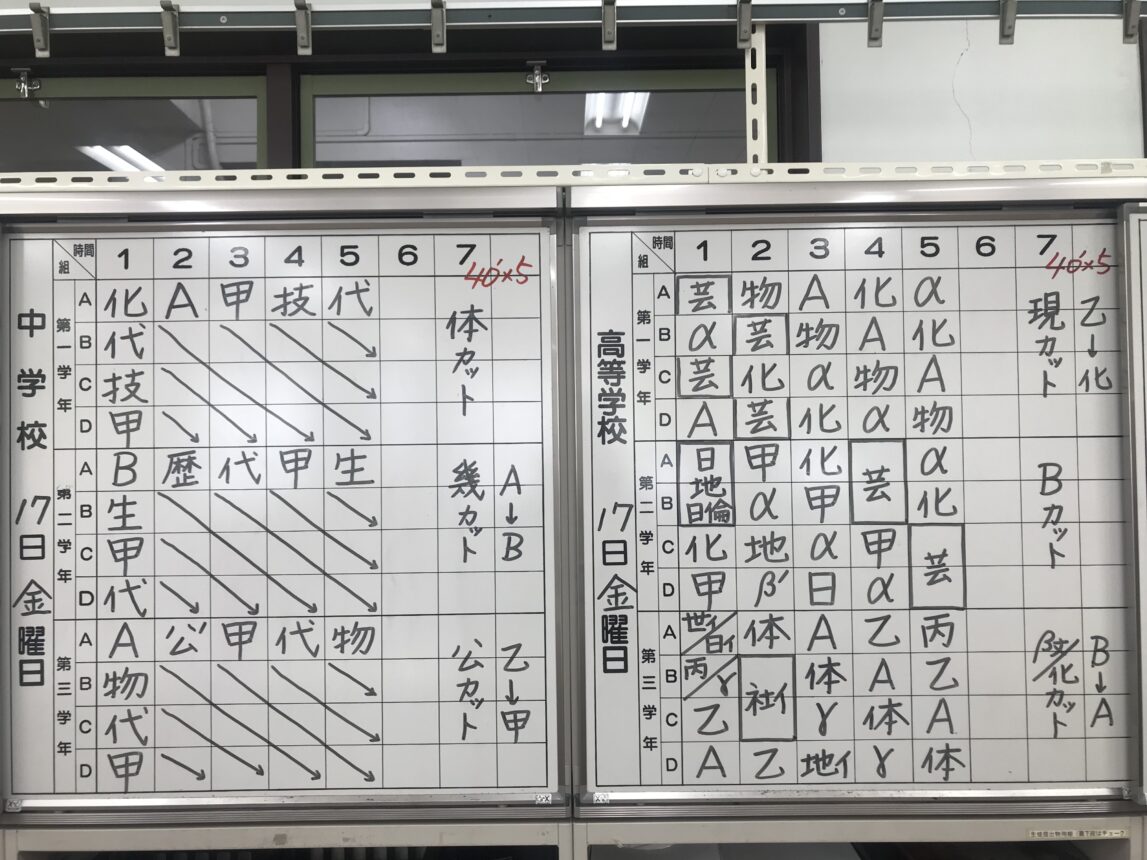 中学校 17日金曜日
時間 組 1 2 3 4 5 6 7
40'×5
第一学年
A 化 A 甲 技 代
B 代
C 技
D 甲
体カット
第二学年
A B 歴 代 甲 生
B 生
C 甲
D 代
幾カット
A→B
第三学年
A A 公 甲 代 物
B 物
C 代
D 甲
公カット
乙→甲
高等学校 17日金曜日
時間 組 1 2 3 4 5 6 7
40'×5
第一学年
A 芸 物 A 化 α
B α 芸 物 A 化
C 芸 化 α 物 A
D A 芸 化 α 物
現カット
乙→化
第二学年
A 日 甲 化 芸 α
地
B 日倫 α 甲 化
C 化 地 α 甲 芸
D 甲 β' 日 α
Bカット
第三学年
A 世イ/日イ 体 A 乙 丙
B 丙/γ 社イ 体 A 乙
C 乙 γ 体 A
D A 乙 地イ γ 体
化カット
B→A